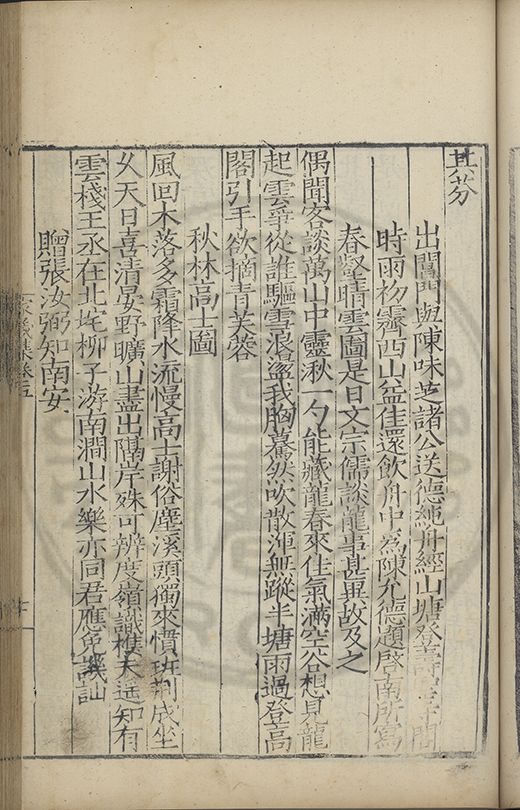 其芬
出閶門與陳味芝諸公送德純舟經山塘登
時雨初霽西山益佳還飲舟中為陳允德題啓南所寫
春壑晴雲圖是日文宗儒談龍事甚異故及之
偶聞客談萬山中靈湫一勺能藏龍春來住氣滿空谷想見龍
起雲爭從誰驅雪浪盪我胸驀然吹散渾無蹤半塘雨過登高
閣引手欲摘青芙蓉
秋林高士圖
風回木落多霜降水流慢高士謝俗塵溪頭獨來慣班荆成坐
久天日喜清晏野曠山盡出隔岸殊可辨度嶺識樵夫遥知有
雲棧王丞在北垞柳子游南澗山水樂亦同君應免譏訕
贈張汝弼知南安
家藏集卷五